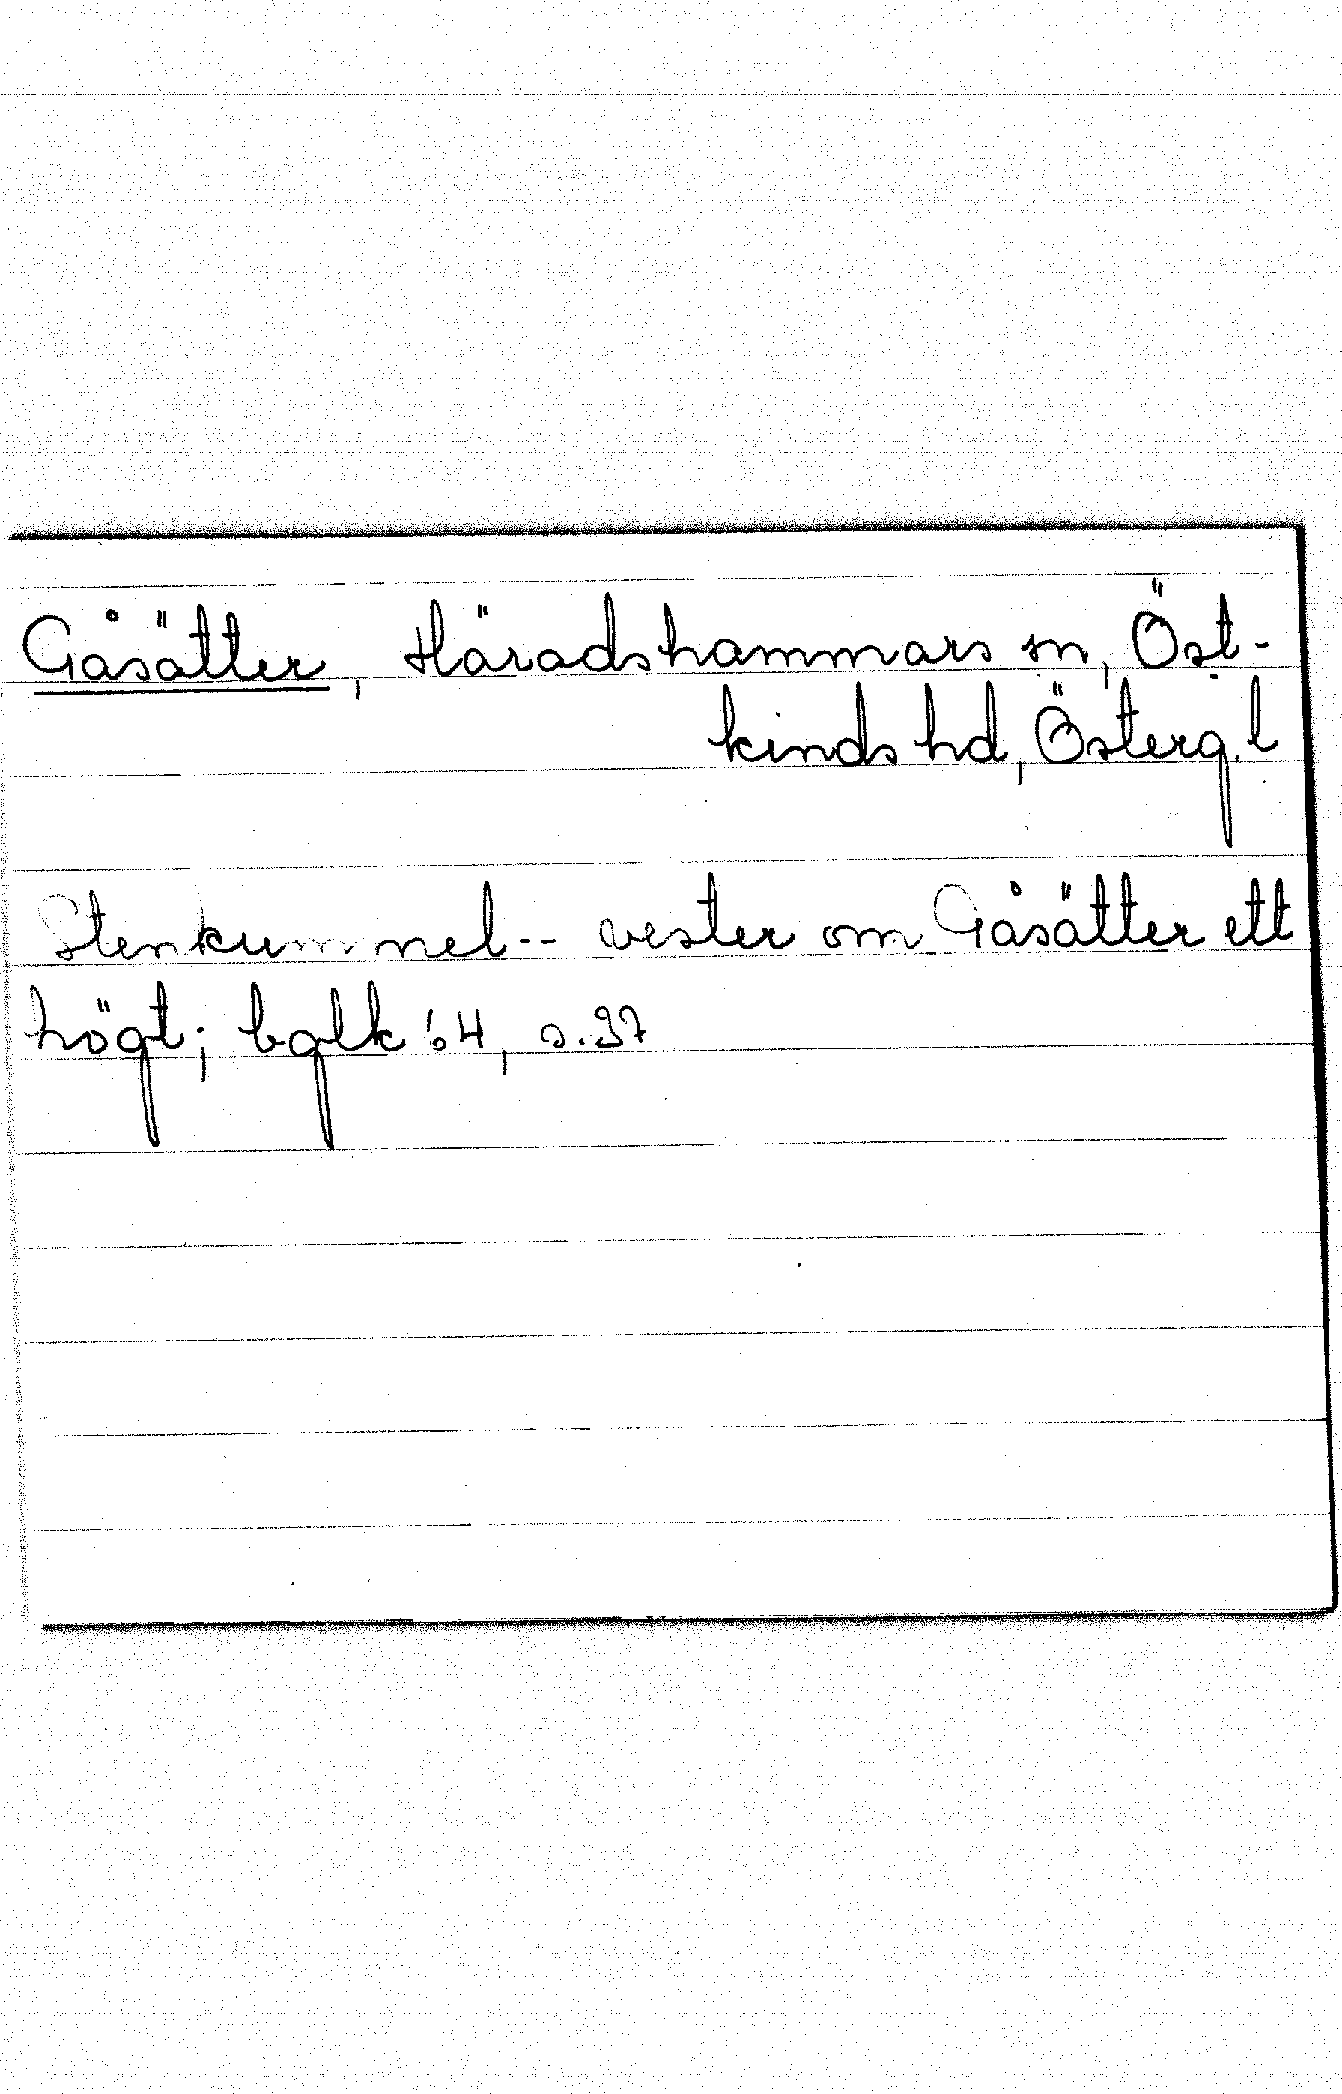 Gåsätter, Häradshammars sn, Öst-
kinds hd, Österg. l
Stenkummel -- vester om Gåsätter ett
högt; bglk 64, s. 37